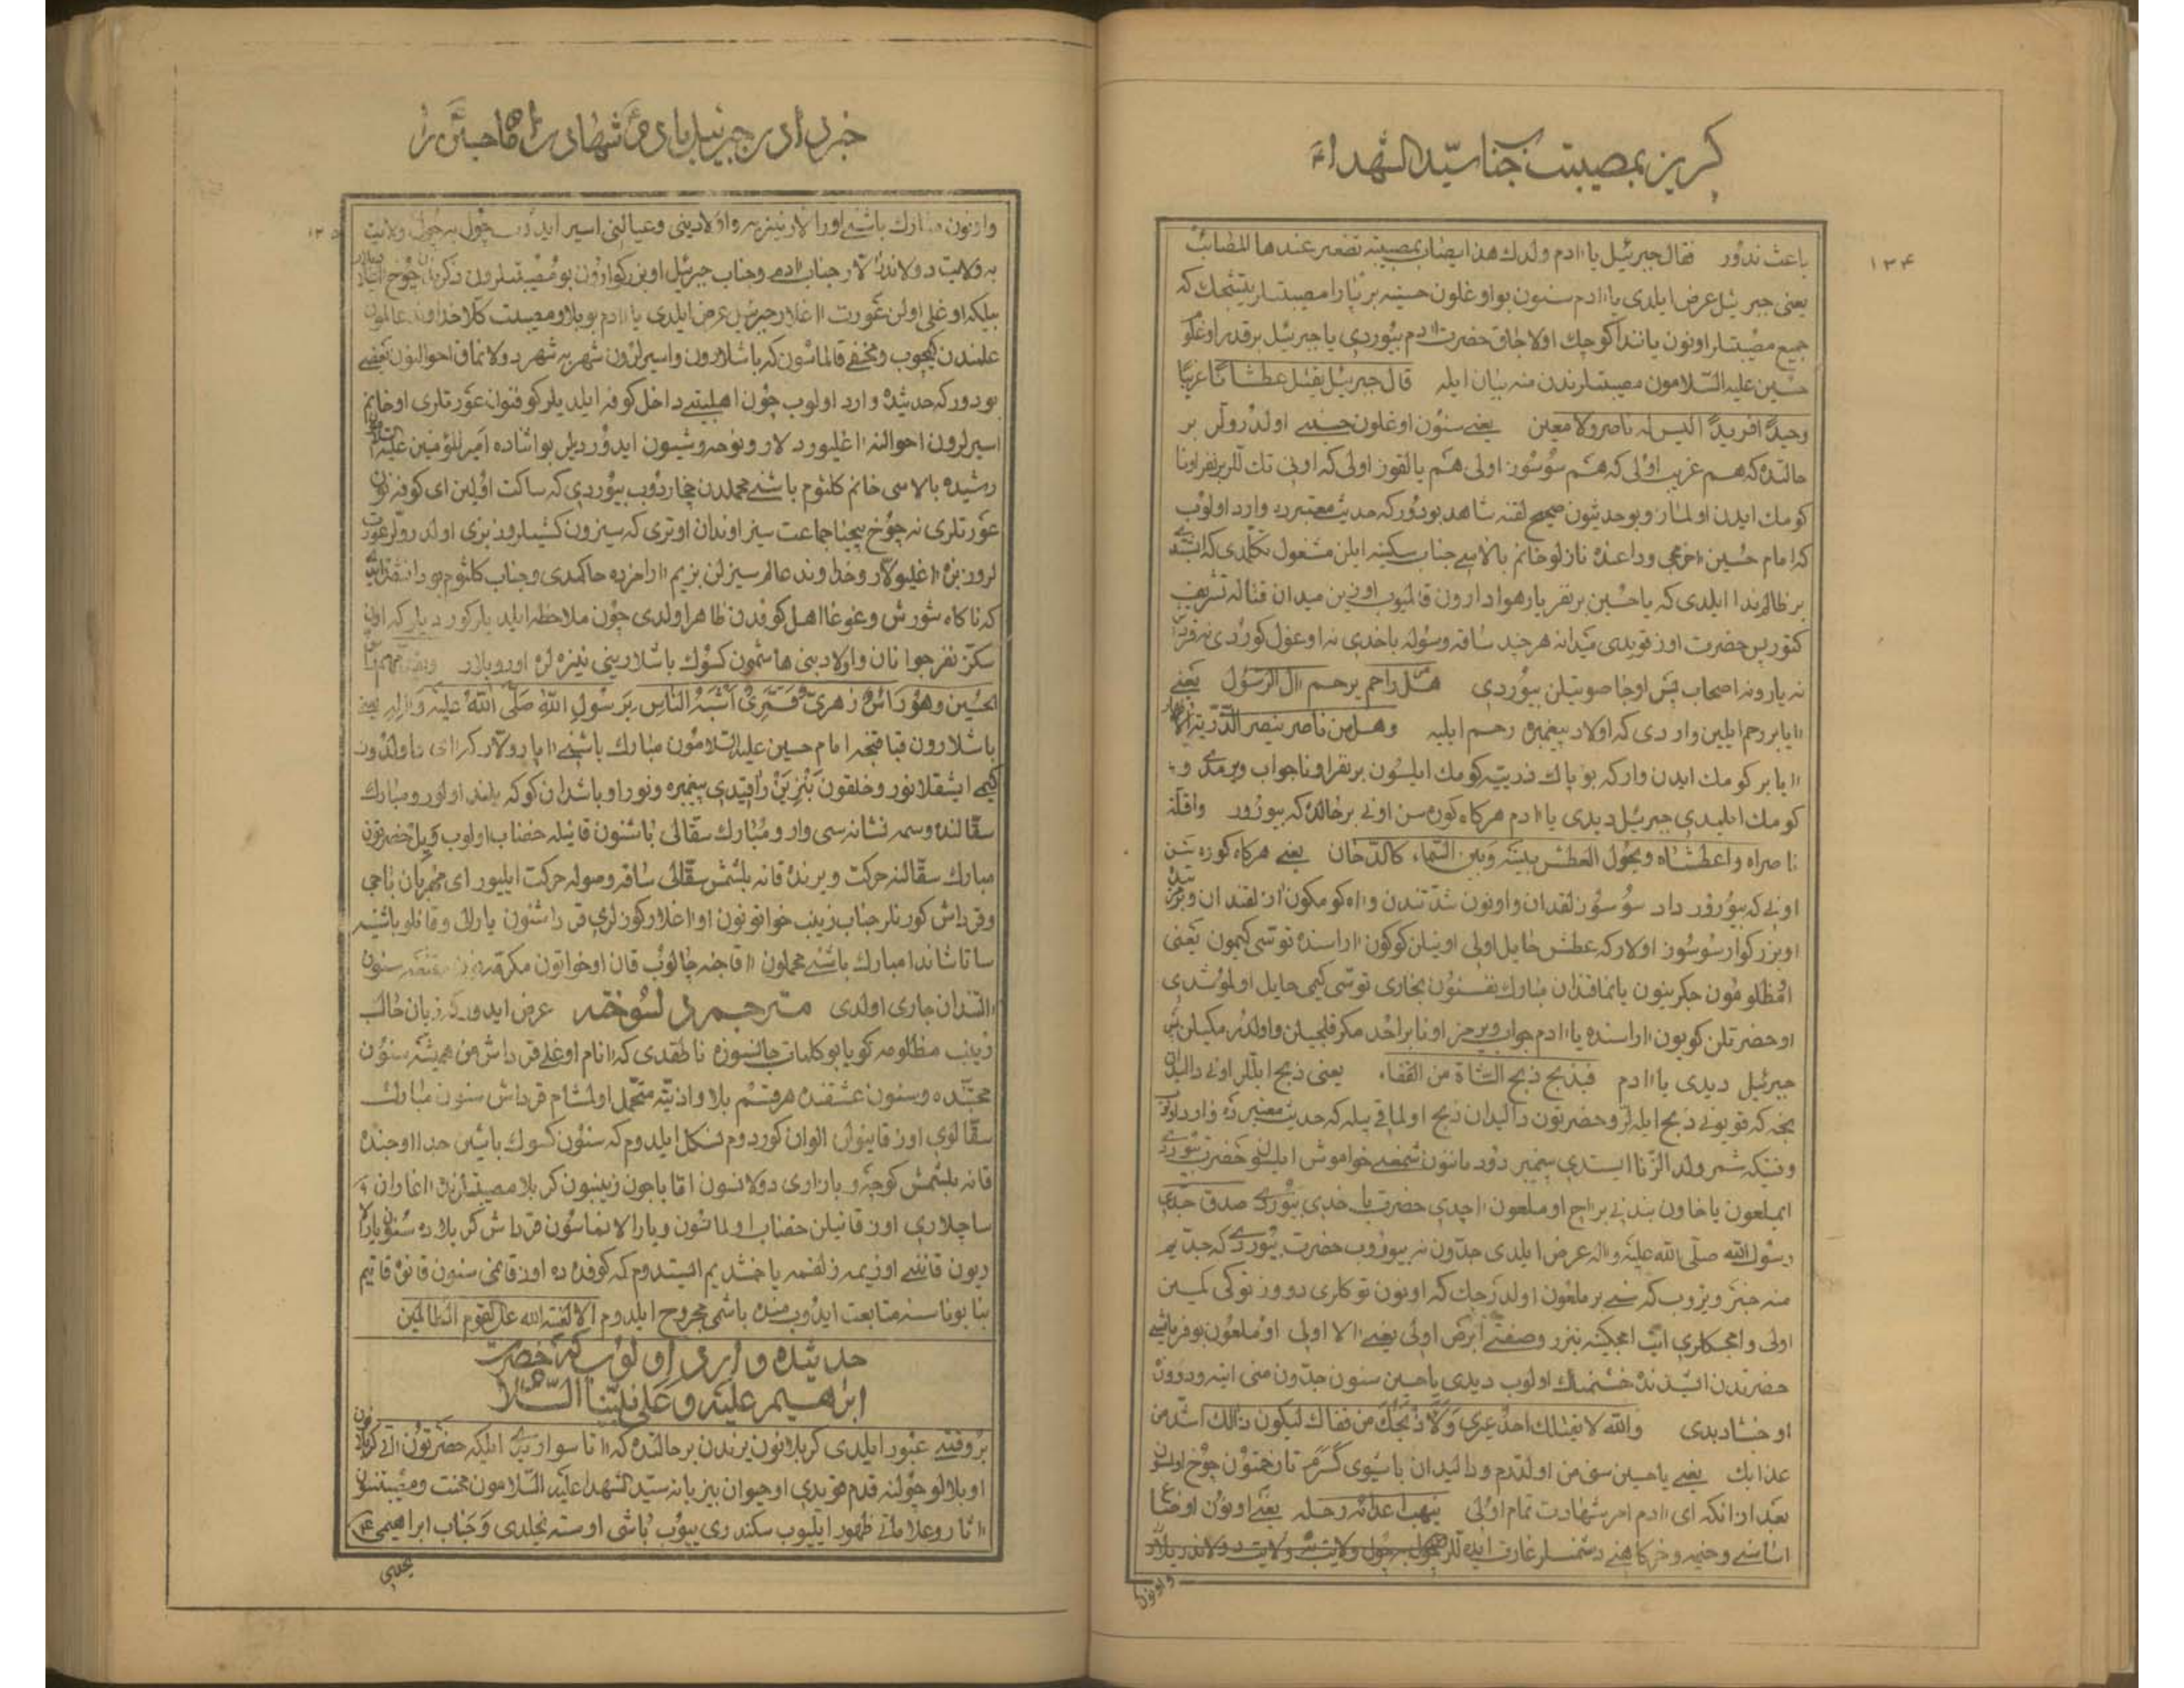 گریز بمصیبت جناب سیّد الشهداء ع
۱۳۴
باعث ندور فقال جبرئیل یا اادم ولدك هذا یصاب بمصیبة تصغر عندها المصائب
یعنی جبرئیل عرض ایلدی یا اادم سنون بو اوغلون حسینه بر پارا مصیبتلر یتیشجك که
جمیع مصیبتلر اونون یاننداکوچك اولاجاق حضرت اادم بیوردی یا جبرئیل برقدر اوغلو
حسین علیه السّلامون مصیبتلرندن منه بیان ایله قال جبرئیل یقتل عطشانًا غریبًا
وحیدًا فریدًا الیس له ناصر ولا معین یعنے سنون اوغلون حسینے اولدرولر بر
حالتده که هم غریب اولی که هم سوسوز اولی هم یالقوز اولی که اونی تك لر بر نفر اونا
کومك ایدن اولماز و بو حدیثون صحیح لقنه شاهد بودور که حدیث معتبرده وارد اولوب
که امام حسین ااخرمجی وداعنده نازلو خانم بالاسے جناب سکینه ایلن مشغول تکلّمدی که ایشده
بر ظالم ندا ایلدی که یا حسین بر نفر یار هوادارون قالمیوب اوزین میدان قتاله تشریف
کتور پس حضرت اوز قویدی میدانه هرچند ساقه و سوله باخدی نه اوغول کوردی نه قرداش
نه یار و نه اصحاب پس اوجا صوتیلن بیوردی هل راحم یرحم اال الرّسول یعنے
اایا بر رحم ایلین واردی که اولاد پیغمبره رحم ایلیه وهل من ناصر ینصر الذّریة الاطهار
اایا بر کومك ایدن وارکه بو پاك ذریته کومك ایلسون بر نفر اونا جواب ویرمدی و
کومك ایلمدی جبرئیل دیدی یا اادم هرکاه کوره سن اونی بر حالتده که بیورور واقلّة
ناصراه واعطشاه ویحول العطش بینه وبین السّماء کالدّخان یعنے هرکاه کوره سن
اونی که بیورور داد سوسوزلقدان و اونون شدّتندن و ااه کومکون ازلقندان
او بزرکوار سوسوز اولار که عطش حایل اولی اونیلن کوکون ااراسنده توسّی کیمون یعنی
او مظلومون جکرینون یانماقندان مبارك نفسنون بخاری توسّی کیمی حایل اولموشدی
او حضرتلن کویون ااراسنده یا اادم جواب ویرمز اونا بر احد مکر قلیجیلن و اولدرمکیلن پس
جبرئیل دیدی یا اادم فیذبح ذبح الشّاة من القفاء یعنی ذبح ایلّلر اونی دالیدان
نجه که قویونی ذبح ایلرلر و حضرتون دالیدان ذبح اولماقی بیله که حدیث معتبرده وارد اولوب
وقتیکه شمر ولد الزّنا ایستدی پیغمبر دودمانون شمعنے خواموش ایلسون حضرت بیوردی
ایملعون یاخاون بندنی بر ااچ او ملعون ااچدی حضرت باخدی بیوردی صدق جدّی
رسول الله صلّی الله علیه و اله عرض ایلدی جدّون نه بیوروب حضرت بیوردی که جدّیم
منه خبر ویروب که سنے بر ملعون اولدرجك که اونون توکلری دونوز توکی کیمین
اولی و امجکلری ایت امجکینه بنزر و صفتے ابرص اولی یعنے االا اولی او ملعون بو فرمایشے
حضرتدن ایشدنده خشمناك اولوب دیدی یا حسین سنون جدّون منی ایته
اوخشادیدی والله لا یقتلك احدٌ غیری ولاذبحنّك من قفاك لیکون ذالك اشدّ من
عذابك یعنے یا حسین سنی من اولدردم و دالیدان باشیوی کسرم تا زخمتون چوخ اولسون
بعد از انکه ای اادم امر شهادت تمام اولی ینهب اعدائه رحله یعنے اونون
اساسنے و خیمه و خرکاهنے دشمنلر غارت ایدلّر
و اونون
خبر دادن جبرئیل بادم ع شهادت اقا حسین ع را
۱۳۵
و اونون مبارك باشنے اورالار نیزیه و اولادینی و عیالنی اسیر ایدوب چول بچول ولایت
به ولایت دولاندرالار جناب اادم و جناب جبرئیل او بزرکوارون بو مصیبتلرون ذکرندن چوخ اغلادیلار
بیلکه اوغلی اولن عورت ااغلار جبرئیل عرض ایلدی یا اادم بو بلا و مصیبت کلا خداوند عالمون
علمندن کیچوب و مخفے قالماسون که باشلارون و اسیرلرون شهر به شهر دولانماق احوالنون بعضے
بودور که حدیثده وارد اولوب چون اهلبیتے داخل کوفه ایلدیلر کوفنون عورتلری او خانم
اسیرلرون احوالنه ااغلیوردلار و نوحه و شیون ایدوردیلر بو اثناده امیر المؤمنین علیه السّلام
رشیده بالاسی خانم کلثوم باشنے محملدن چخاردوب بیوردی که ساکت اولین ای کوفه نون
عورتلری نه چوخ بیحیا جماعت سیز اوندان اوتری که سیزون کشیلروز بزی اولدرولر عورت
لروز بزه ااغلیولار و خداوند عالم سیزلن بزیم اارامزده حاکمدی و جناب کلثوم بوردا نقل ایلیر
که ناکاه شورش و غوغا اهل کوفه دن ظاهر اولدی چون ملاحظه ایلدیلر کوردیلر که اون
سکز نفر جوانان و اولاد بنی هاشمون کسوك باشلارینی نیزه لره اوروبلار
الحسین وهو رأسٌ زهریٌّ قمریٌّ اشبه النّاس برسول الله صلّی الله علیه و اله یعنے
باشلارون قباقنجه امام حسین علیه السّلامون مبارك باشنے ااپارولار که اای
کیمی ایشقلانور و خلقون بنزیرَن راقیدی پیغمبره و نور او باشدان کوکه بلند اولور و مبارك
سقّالنده وسمه نشانه سی وار و مبارك سقّالی باشنون قانیله خضاب اولوب و یل حضرتون
مبارك سقّالنه حرکت ویرنده قانه بلشمش سقّالی ساقه و سوله حرکت ایلیور ای مهربان باجی
و قرداش کورنلر جناب زینب خواتونون او ااغلار کوزلری قرداشنون یارالی و قانلو باشینه
ساتاشاندا مبارك باشنے محملون ااقاجنه چالوب قان او خواتون مکرّمه نون مقنعه سنون
االتندان جاری اولدی مترجم دلسوخته عرض ایدور که زبان حالے
زینب مظلومه کویا بو کلمات جانسوزه ناطقدی که اانام اوغلی قرداش من همیشه سنون
محبّتده و سنون عشقنده هر قسم بلا و اذیّته متحمّل اولمشام قرداش سنون مبارك
سقّالوی اوز قانیولن الوان کوردوم تحمل ایلدوم که سنون کسوك باشین جدا اوجنده
قانه بلشمش کوچه و بازاری دولانسون اقا باجون زینبون کربلا مصیبتلرنده ااغاران
ساچلاری اوز قانیلن خضاب اولماسون و یارالانماسون قرداش کربلاده سنون یارالا
ریون قاننے اوزیمه زلفمه یاخشدیم ایستدوم که کوفده ده اوز قانمی سنون قانوه قاتیم
بنا بونا سنه متابعت ایدوب منده باشمی مجروح ایلدوم الا لعنة الله علی القوم الظّالمین
حدیثده وارد اولوب که حضرت
ابراهیم علیه و علی نبیّنا السّلام
بر وقتے عبور ایلدی کربلانون یرندن بر حالتده که ااتا سوارایدی ایلکه حضرتون ااتی کربلانون
او بلالو چولنه قدم قویدی او حیوان بیزبانه سیّد الشهداء علیه السّلامون محنت و مصیبتنون
ااثار و علاماتے ظهور ایلیوب سکندری ییوب باشی اوسته یخیلدی و جناب ابراهیمی ع
یخدی